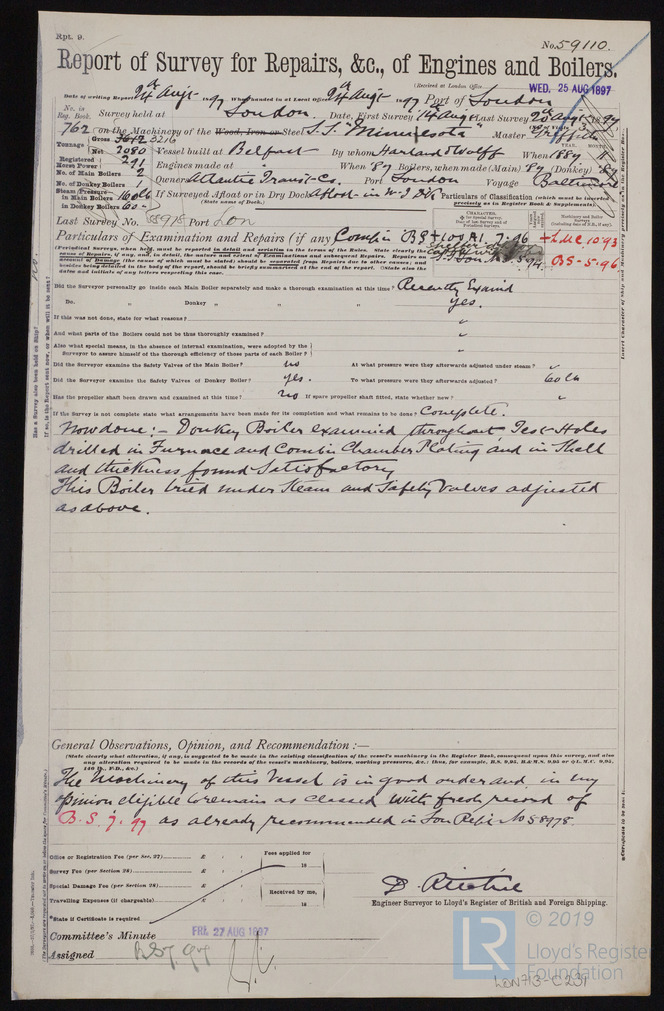 Rpt. 9.
No. 59110.
Report of Survey for Repairs, &c., of Engines and Boilers.
(Received at London Office WED. 25 AUG 1897
Date of writing Report 24th Augt 1897 When handed in at Local Office 24th Augt 1897 Port of London
No. in Reg. Book. Survey held at London. Date, First Survey 14th Aug Last Survey 1897
762 on the Machinery of the Wood, Iron or Steel S.S. "Minnesota" Master Griffiths
Tonnage Gross 3216
Net 2080 Vessel built at Belfast By whom Harland & Wolff When 1887
Registered Horse Power 291 Engines made at " When 87 Boilers, when made (Main) 87 (Donkey) 87
No. of Main Boilers 2
No. of Donkey Boilers 1 Owners Atlantic Transt. Co. Port London Voyage Baltimore
Steam Pressure in Main Boilers 160 lb If Surveyed Afloat or in Dry Dock Afloat in W.I. Dk
in Donkey Boilers 60 (State name of Dock.)
Particulars of Classification (which must be inserted precisely as in Register Book & Supplements).
Last Survey No. 58978 Port Lon
Particulars of Examination and Repairs (if any) Compln BS
+100A1. 7.96
+LMC 10.93
BS-5.96
(Periodical Surveys, when held, must be reported in detail and seriatim in the terms of the Rules. State clearly the cause of Repairs, if any, and, in detail, the nature and extent of Examinations and subsequent Repairs. Repairs on account of Damage (the cause of which must be stated) should be separated from Repairs due to other causes; and besides being detailed in the body of the report, should be briefly summarised at the end of the report. (State also the dates and initials of any letters respecting this case.
Did the Surveyor personally go inside each Main Boiler separately and make a thorough examination at this time? Recently Examd
Do. " Donkey " " " yes.
If this was not done, state for what reasons? "
And what parts of the Boilers could not be thus thoroughly examined? "
Also what special means, in the absence of internal examination, were adopted by the
Surveyor to assure himself of the thorough efficiency of those parts of each Boiler? "
Did the Surveyor examine the Safety Valves of the Main Boiler? no At what pressure were they afterwards adjusted under steam? "
Did the Surveyor examine the Safety Valves of Donkey Boiler? yes. To what pressure were they afterwards adjusted? 60 lb
Has the propeller shaft been drawn and examined at this time? no If spare propeller shaft fitted, state whether new? "
If the Survey is not complete state what arrangements have been made for its completion and what remains to be done? Complete.
Now done:- Donkey Boiler examined throughout Test Holes
drilled in Furnace and Combn Chamber Plating and in Shell
and thickness found Satisfactory
This Boiler tried under Steam and Safety Valves adjusted
as above.
General Observations, Opinion, and Recommendation:—
(State clearly what alteration, if any, is suggested to be made in the existing classification of the vessel's machinery in the Register Book, consequent upon this survey, and also any alteration required to be made in the records of the vessel's machinery, boilers, working pressures, &c.: thus, for example, B.S. 9,95, B.&M.S. 9,95 or +L.M.C. 9,95, 140 lb., F.D., &c.)
The Machinery of this Vessel is in good order and in my
opinion eligible to remain as classed with fresh record of
B.S. 7.97 as already recommended in Lon Rept. No 58978.
Office or Registration Fee (per Sec. 27) £ : : Fees applied for
Survey Fee (per Section 28) £ : : 18
Special Damage Fee (per Section 28) £ : :
Travelling Expenses (if chargeable) £ : : Received by me,
*State if Certificate is required 18
D. Ritchie
Engineer Surveyor to Lloyd's Register of British and Foreign Shipping.
Committee's Minute FRI. 27 AUG 1897
Assigned BS 7.97
LR
© 2019
Lloyd's Register
Foundation
LON 713-C231